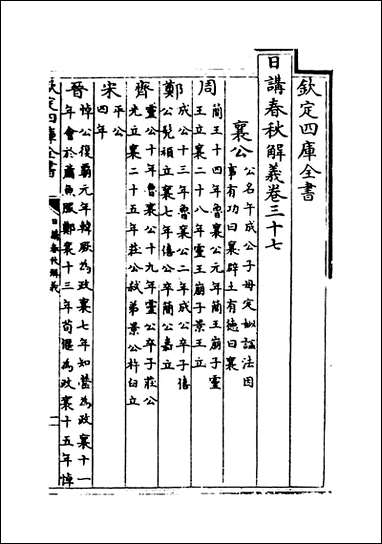 欽定四庫全書
日講春秋解義卷三十七
襄公
公名午成公子母定姒諡法因
事有功曰襄辟土有德曰襄
周
簡王十四年魯襄公元年簡王崩子靈
王立襄二十八年靈王崩子景王立
鄭
成公十三年魯襄公二年成公卒子僖
公髠頑立襄七年僖公卒簡公嘉立
齊
靈公十年魯襄公十九年靈公卒子莊公
光立襄二十五年莊公弑弟景公杵臼立
宋
平公
四年
晉
悼公復霸元年韓厥為政襄七年知罃為政襄十一
年會於蕭魚服鄭襄十三年荀偃為政襄十五年悼
欽定四庫全書
日講春秋解義
一